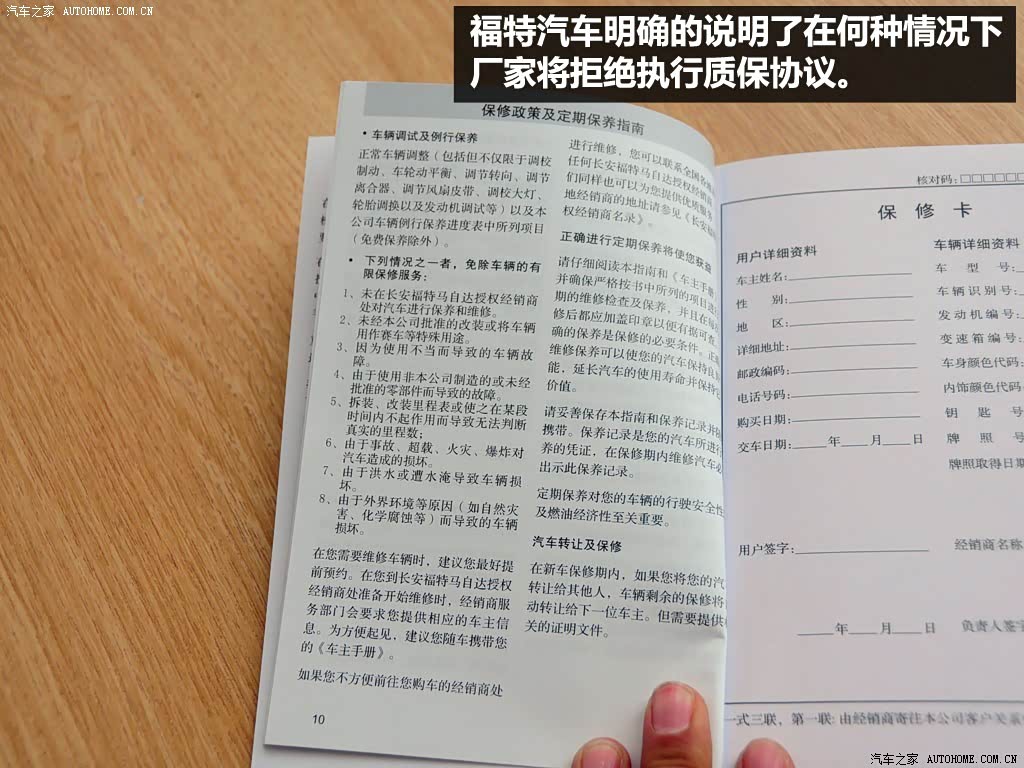 汽车之家 AUTOHOME.COM.CN
福特汽车明确的说明了在何种情况下
厂家将拒绝执行质保协议。
保修政策及定期保养指南
• 车辆调试及例行保养
正常车辆调整（包括但不仅限于调校
制动、车轮动平衡、调节转向、调节
离合器、调节风扇皮带、调校大灯、
轮胎调换以及发动机调试等）以及本
公司车辆例行保养进度表中所列项目
（免费保养除外）。
• 下列情况之一者，免除车辆的有
限保修服务：
1、未在长安福特马自达授权经销商
处对汽车进行保养和维修。
2、未经本公司批准的改装或将车辆
用作赛车等特殊用途。
3、因为使用不当而导致的车辆故
障。
4、由于使用非本公司制造的或未经
批准的零部件而导致的故障。
5、拆装、改装里程表或使之在某段
时间内不起作用而导致无法判断
真实的里程数；
6、由于事故、超载、火灾、爆炸对
汽车造成的损坏。
7、由于洪水或遭水淹导致车辆损
坏。
8、由于外界环境等原因（如自然灾
害、化学腐蚀等）而导致的车辆
损坏。
在您需要维修车辆时，建议您最好提
前预约。在您到长安福特马自达授权
经销商处准备开始维修时，经销商服
务部门会要求您提供相应的车主信
息。为方便起见，建议您随车携带您
的《车主手册》。
如果您不方便前往您购车的经销商处
10
进行维修，您可以联系全国各
任何长安福特马自达授权经销商
们同样也可以为您提供优质服务
地经销商的地址请参见《长安福
权经销商名录》。
正确进行定期保养将使您获益
请仔细阅读本指南和《车主手册》
并确保严格按书中所列的项目进
期的维修检查及保养，并且在每
修后都应加盖印章以便有据可查
确的保养是保修的必要条件。正
维修保养可以使您的汽车保持良
能，延长汽车的使用寿命并保持
价值。
请妥善保存本指南和保养记录并
携带。保养记录是您的汽车所进行
养的凭证，在保修期内维修汽车必
出示此保养记录。
定期保养对您的车辆的行驶安全性
及燃油经济性至关重要。
汽车转让及保修
在新车保修期内，如果您将您的汽
转让给其他人，车辆剩余的保修将
动转让给下一位车主。但需要提供
关的证明文件。
核对码：□□□□□□
保 修 卡
用户详细资料
车主姓名:
性 别:
地 区:
详细地址:
邮政编码:
电话号码:
购买日期:
交车日期:____年___月___日
车辆详细资料
车 型 号:
车辆识别号:
发动机编号:
变速箱编号:
车身颜色代码:
内饰颜色代码:
钥 匙 号
牌 照 号
牌照取得日期
用户签字:
经销商名称
____年___月___日
负责人签字
一式三联，第一联: 由经销商寄往本公司客户关系
汽车之家 AUTOHOME.COM.CN